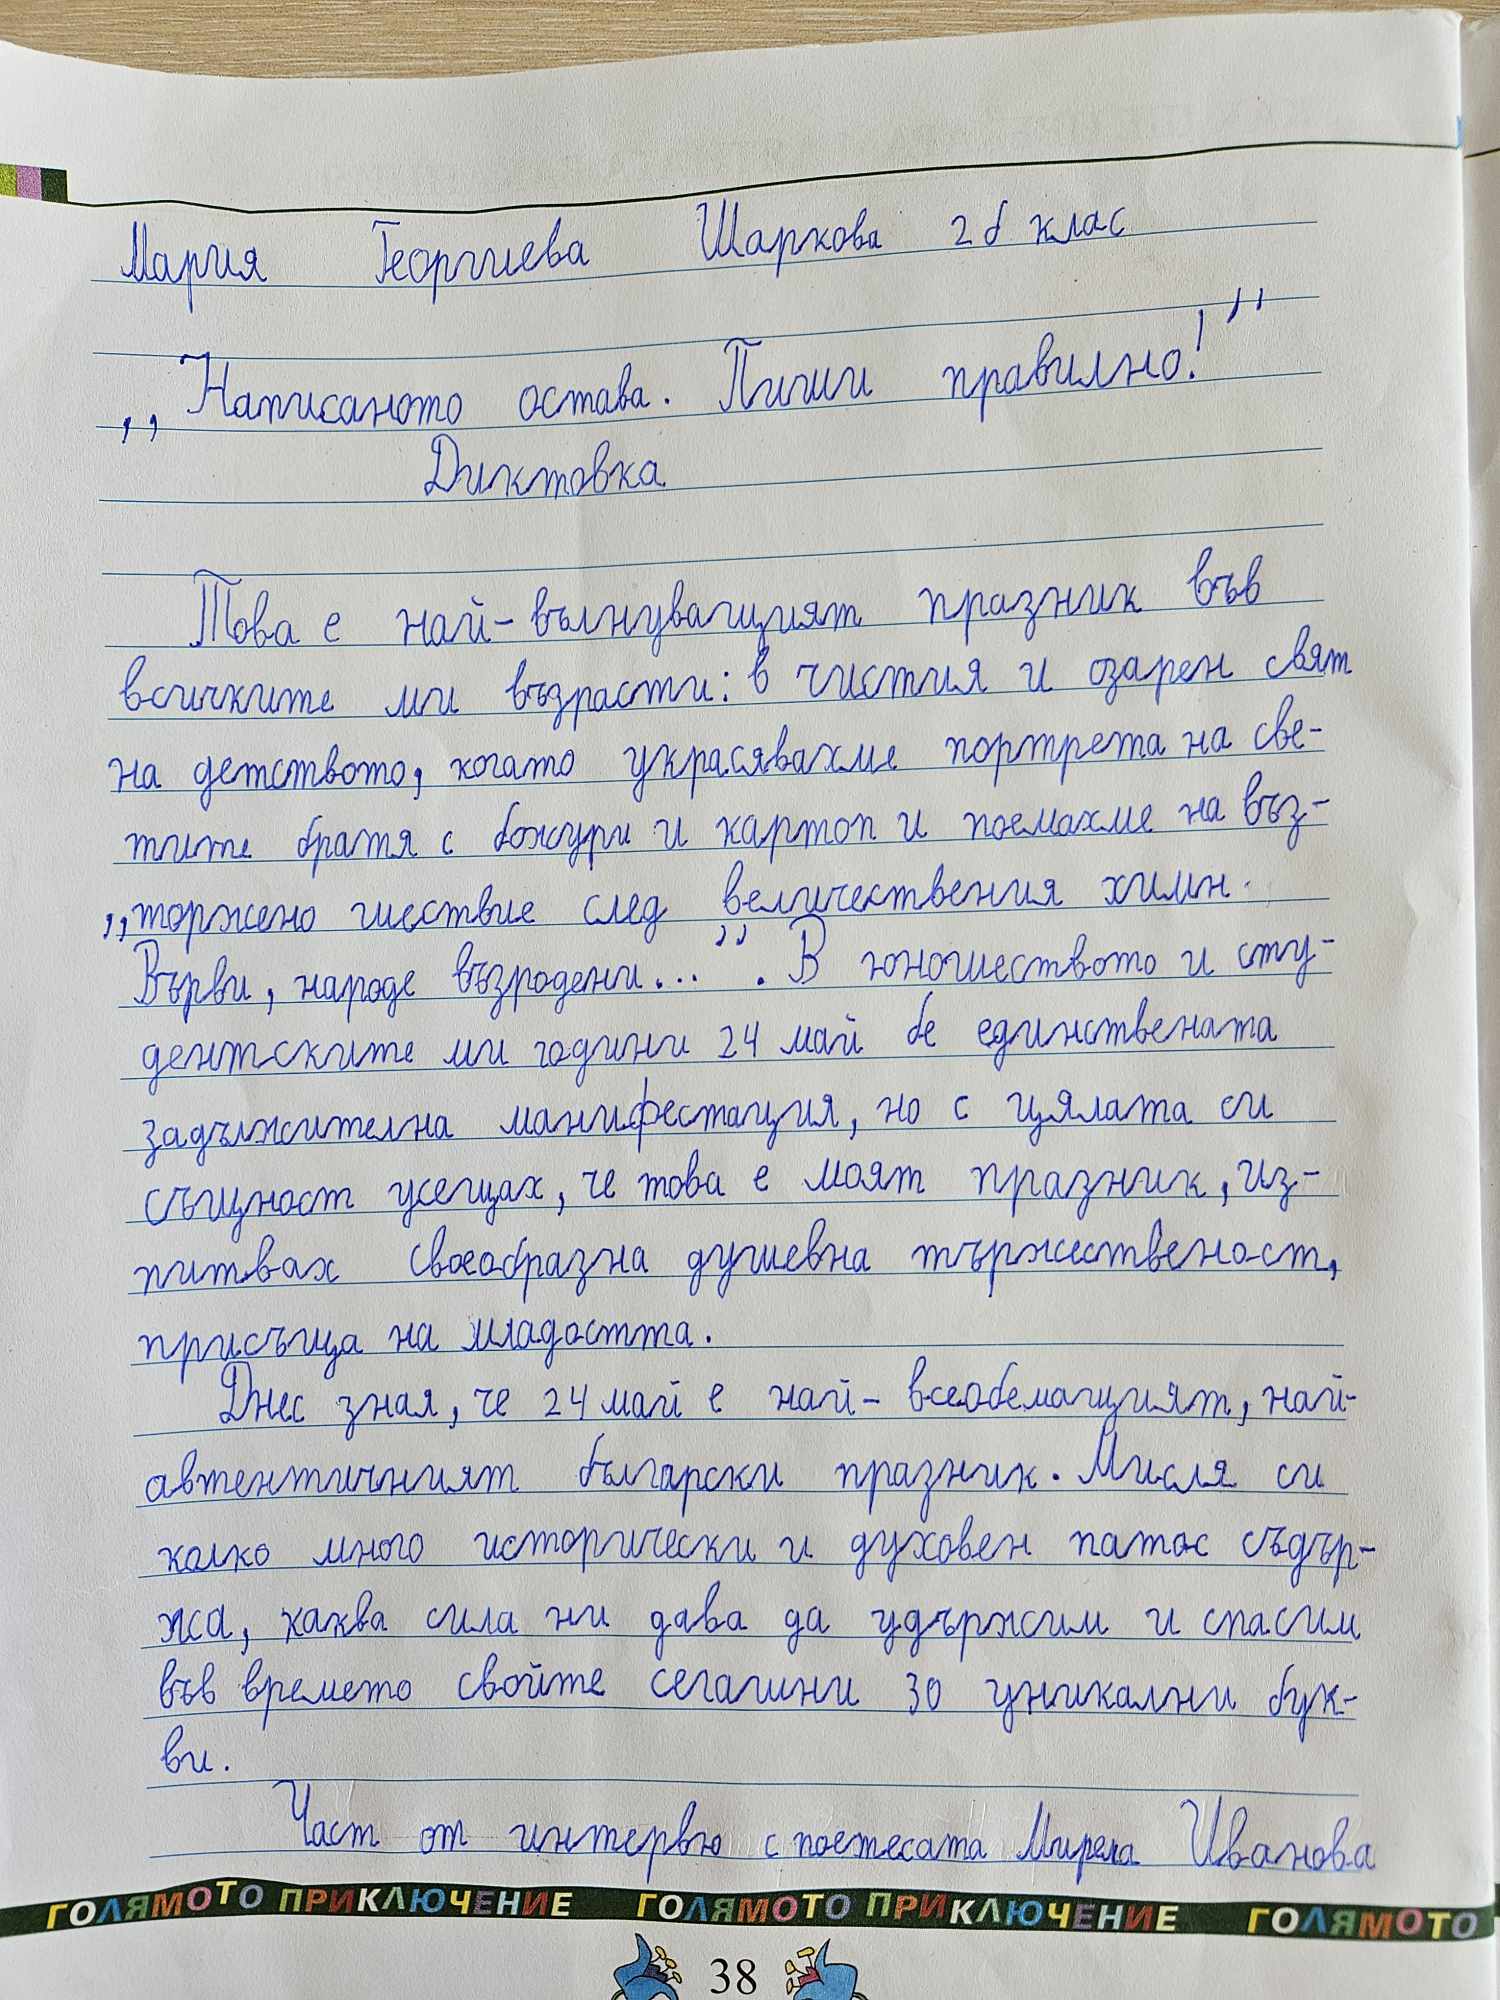 Мария Георгиева Шаркова 2б клас
,,Написаното остава. Пиши правилно!"
Диктовка
Това е най-вълнуващият празник във
всичките ми възрасти: в чистия и озарен свят
на детството, когато украсявахме портрета на све-
тите братя с божури и картон и поемахме на въз-
,,торжено шествие след величествения химн.
Върви, народе възродени...". В юношеството и сту-
дентските ми години 24 май бе единствената
задължителна манифестация, но с цялата си
същност усещах, че това е моят празник, из-
питвах своеобразна душевна тържественост,
присъща на младостта.
Днес зная, че 24 май е най-всеобемащият, най-
автентичният български празник. Мисля си
колко много исторически и духовен патос съдър-
жа, каква сила ни дава да удържим и спасим
във времето свойте сегашни 30 уникални бук-
ви.
Част от интервю с поетесата Мирела Иванова
ГОЛЯМОТО ПРИКЛЮЧЕНИЕ ГОЛЯМОТО ПРИКЛЮЧЕНИЕ ГОЛЯМОТО
38